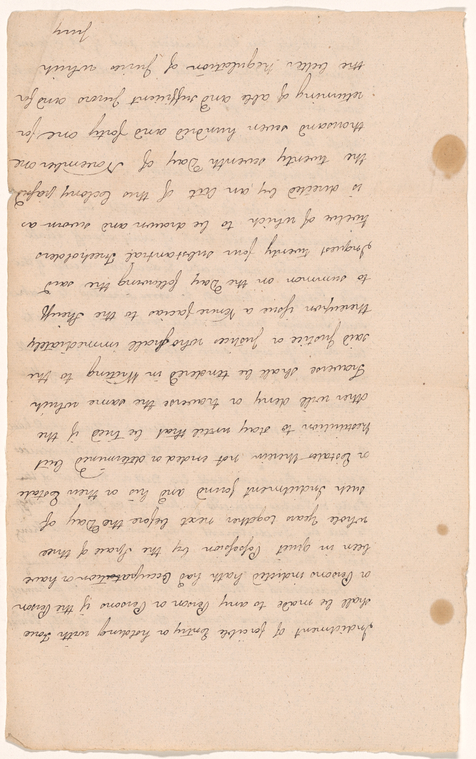 Indictment of forcible Entry or holding with Force
shall be made to any Person or Persons if the Person
or Persons indicted hath had Occupation or have
been in quiet Possession by the Space of three
whole Years together next before the Day of
such Indictment found and his or their Estate
or Estates therein not ended or determined but
Restitution to stay until that be tried if the
other will deny or traverse the same which
Traverse shall be tendered in Writing to the
said Justice or Justices who shall immediately
thereupon issue a Venire facias to the Sheriff
to summon on the Day following the said
Inquest twenty four substantial Freeholders
twelve of which to be drawn and sworn as
is directed by an Act of this Colony passed
the twenty seventh Day of November one
thousand seven hundred and forty one for
returning of able and sufficient Jurors and for
the better Regulation of Juries which
Jury